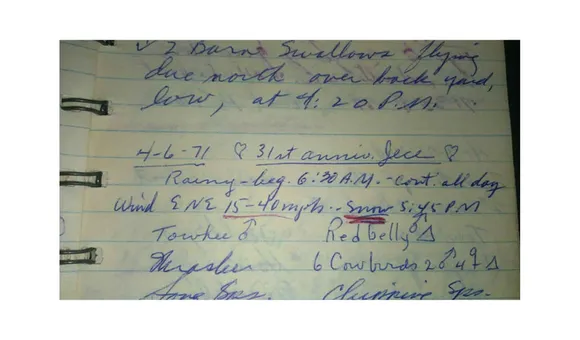 ✓ 2 Barn Swallows flying
due north over back yard,
low, at 4:20 P.M.
4-6-71 ♡ 31st anniv. Jece ♡
Rainy - beg. 6:30 A.M. - cont. all day
Wind ENE 15-40 mph -- Snow 5:45 P.M
Towhee ♂ Redbelly ♂ △
Thrasher 6 Cowbirds 2♂ 4♀ △
Song Sps. Chipping Sps.